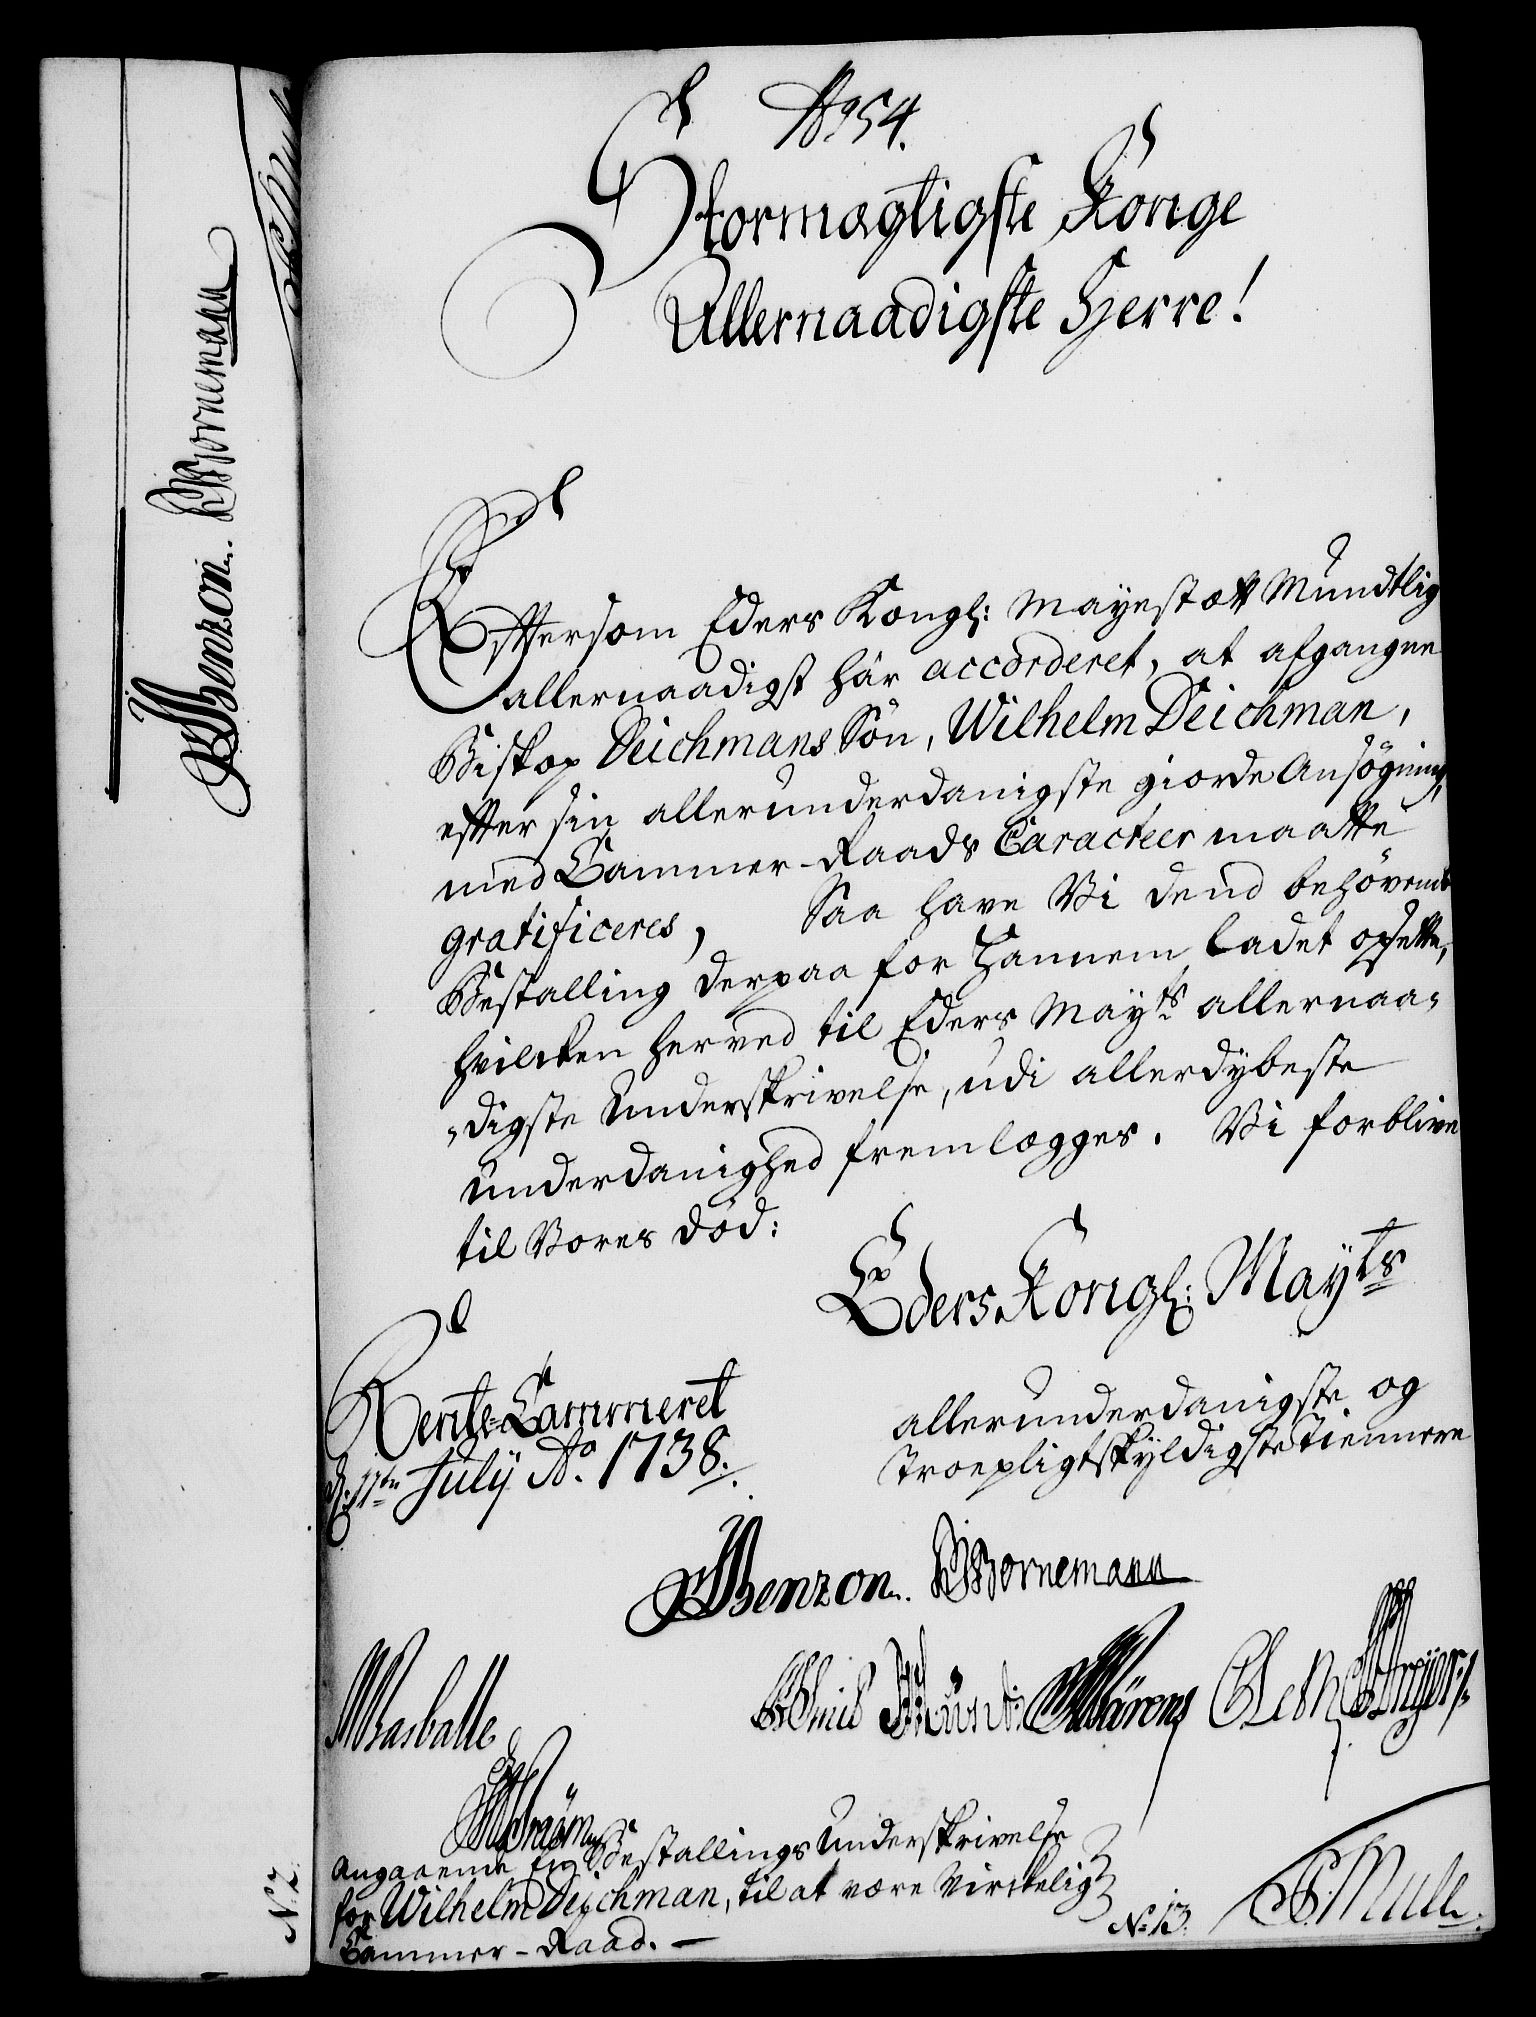 No 54.
Stormægtigste Konge
Allernaadigste Herre!
Eftersom Eders Kongl: Mayestætt Mundtlig
allernaadigst har accorderet, at afgangne
Biskop Deichmans Sön, Wilhelm Deichman,
efter sin allerunderdanigste giorde Ansögning,
med Cammer-Raads Caracteer maatte
gratificeres, Saa have Vi dend behövende
Bestalling derpaa for Hannem ladet opsette,
hvilcken herved til Eders Mayts allernaa-
-digste Underskrivelse, udi allerdybeste
underdanighed fremlægges. Vi forblive
til Vores Död:
Eders Kongl: Mayts
Rente-Cammeret
d: 11te July Ao. 1738.
allerunderdanigste og
troepligtskyldigste tiennere
Benzon. Bornemann
Braëm
Angaaende En Bestallings Underskrivelse
for Wilhelm Deichman, til at være Virckelig
Cammer-Raad. -
No 13.
Benzon. Bornemann
N. 2.